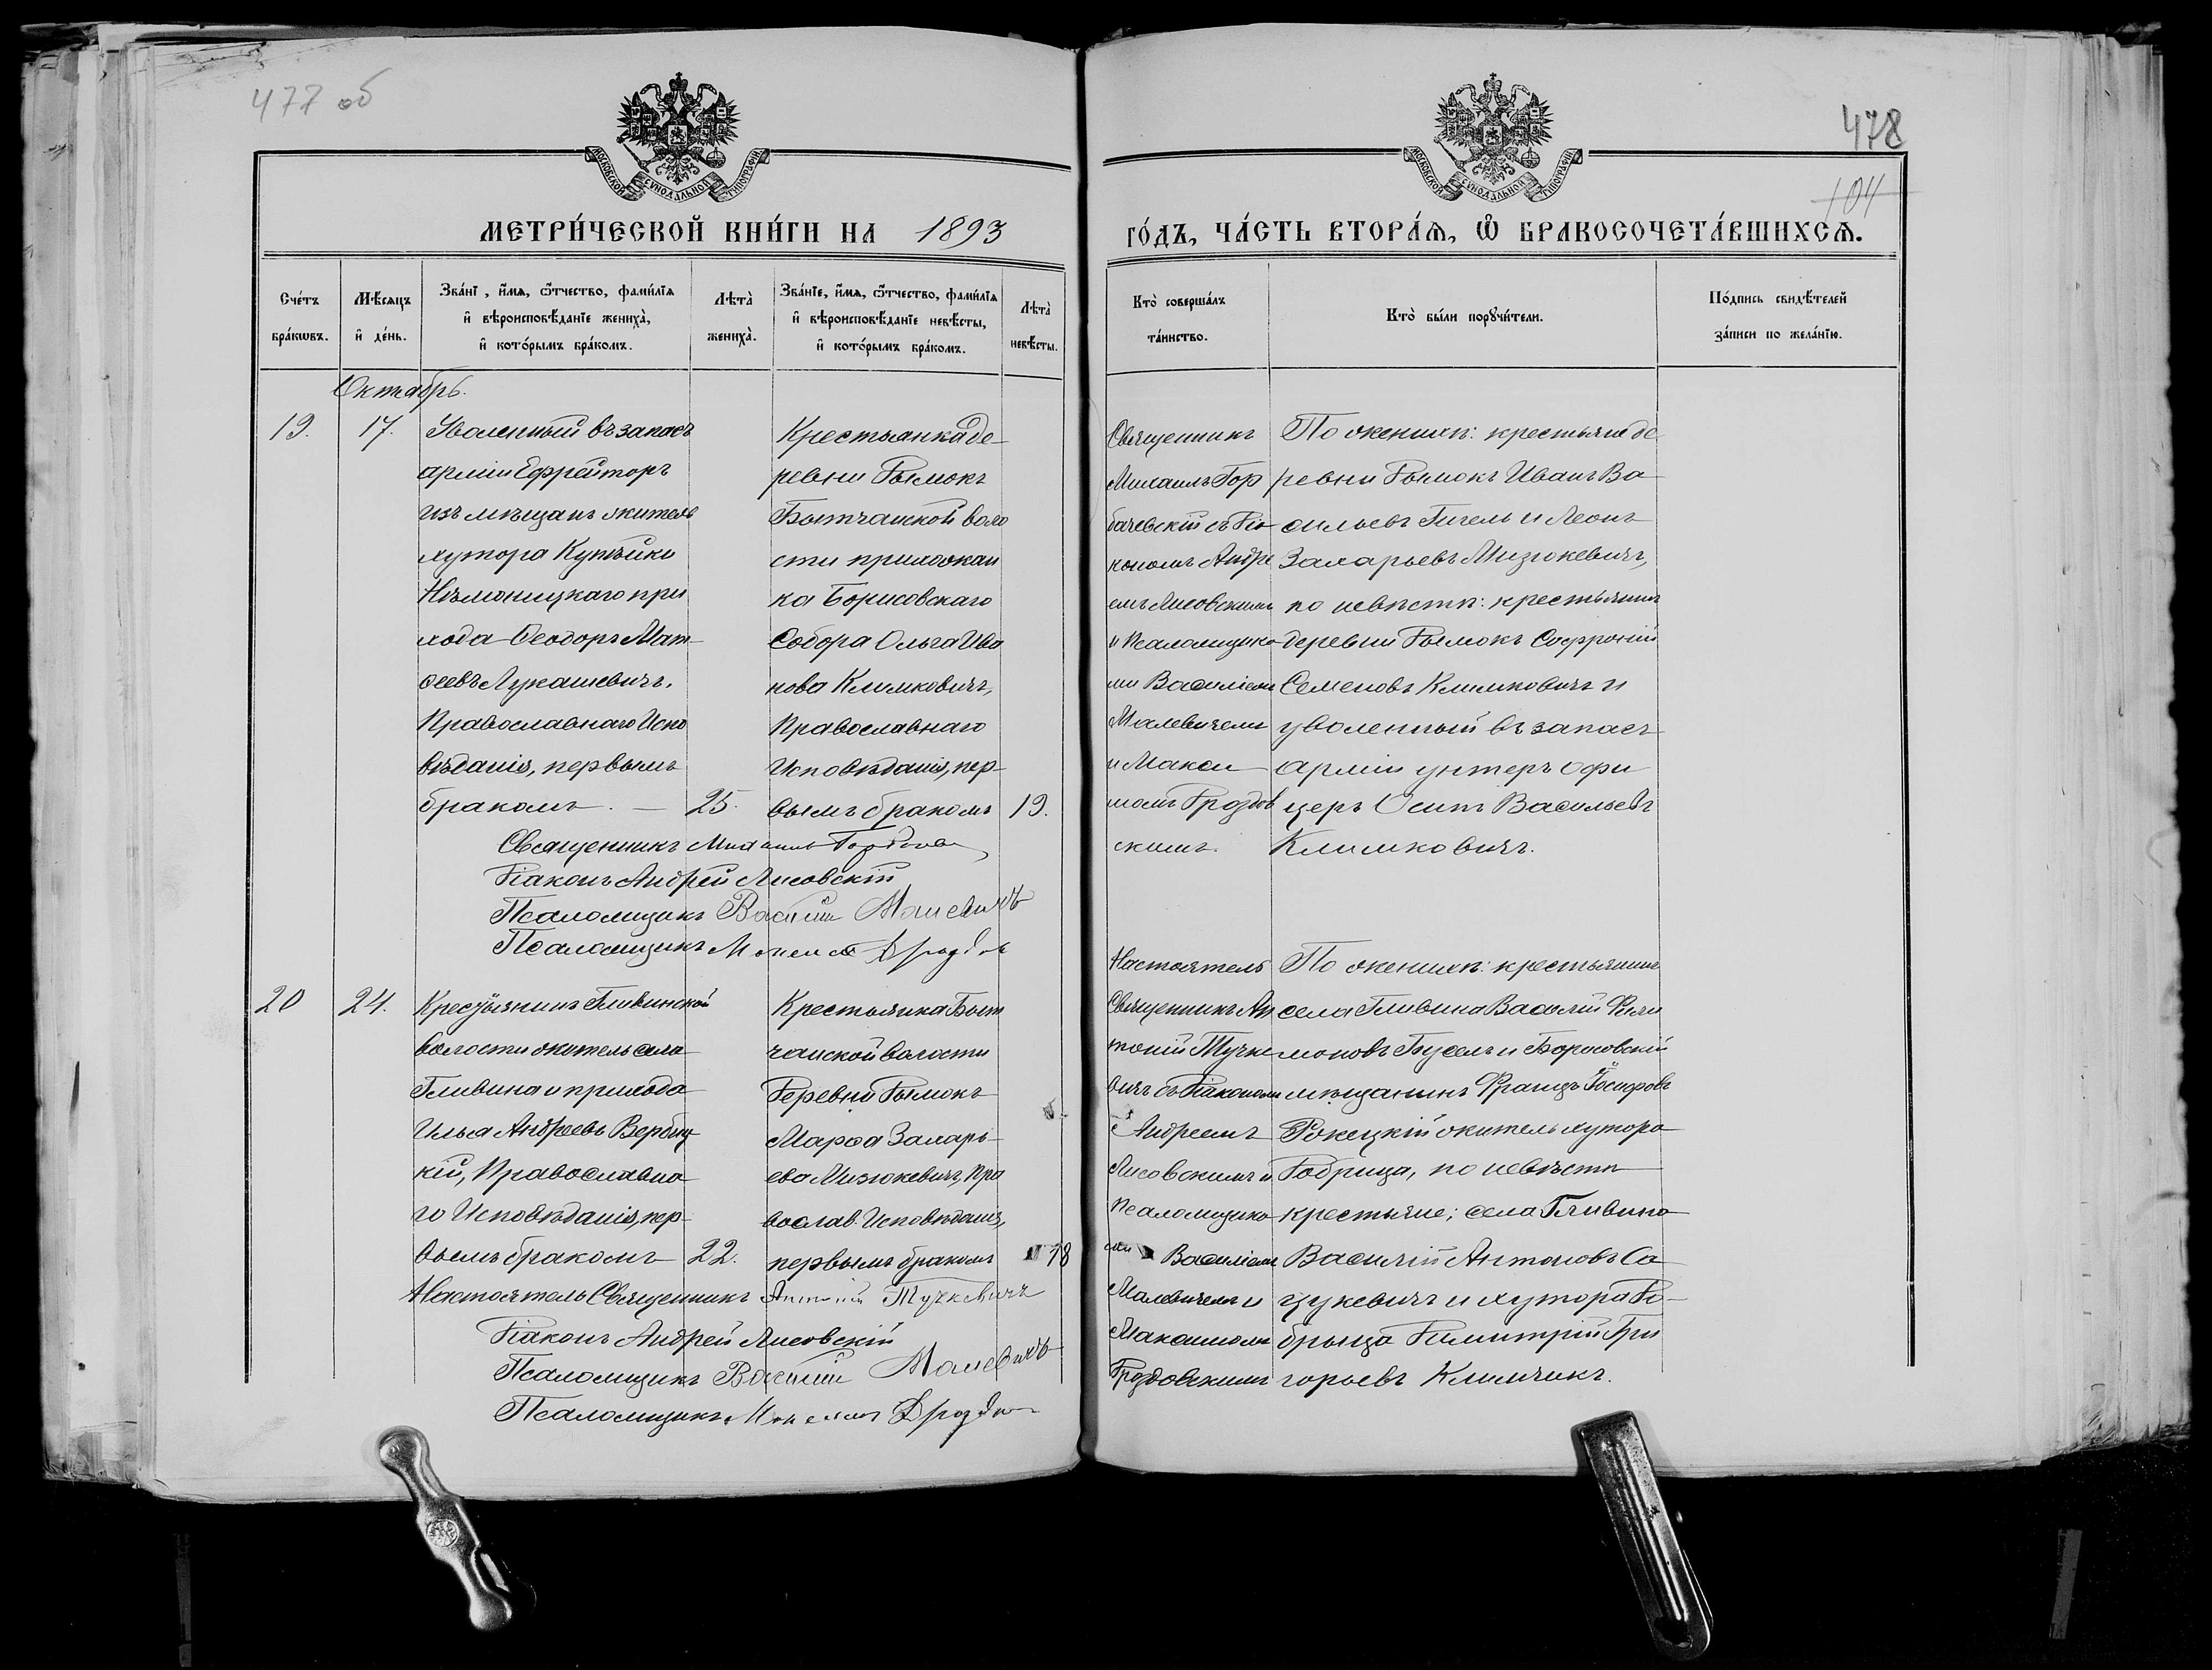 477 об
МОСКОВСКОЙ СѴНОДАЛЬНОЙ ТИПОГРАФІИ
МЕТРИ́ЧЕСКОЙ КНИ́ГИ НА 1893
Сче́тъ бра́кѡвъ.
Мѣ́сяцъ и҆ де́нь.
Зва́нї , и҆́мѧ, ѻ҆́тчество, фами́лїѧ
и҆ вѣроисповѣ́данїе жениха̀,
и҆ кото́рымъ бра́комъ.
Лѣта̀ жениха̀.
Зва́нїе, и҆́мѧ, ѻ҆́тчество, фами́лїѧ
и҆ вѣроисповѣ́данїе невѣ́сты,
и҆ кото́рымъ бра́комъ.
Лѣта̀ невѣ́сты.
Октябрь.
19.
17.
Уволенный въ запасъ
арміи Ефрейторъ
изъ мѣщанъ житель
хутора
Нѣманицкаго при
хода Ѳеодоръ Мат-
ѳеевъ Лукашевичъ,
Православнаго Испо
вѣданія, первымъ
бракомъ. — 25.
Крестьянка де-
ревни Дымокъ
Бытчанской воло
сти прихожан
ка Борисовскаго
Собора Ольга Ива
нова Климковичъ,
Православнаго
Исповѣданія, пер-
вымъ бракомъ 19.
Священникъ Михаилъ
Діаконъ Андрей Лисовскій
Псаломщикъ Василій Малевичъ
Псаломщикъ
20
24.
Крестьянинъ Гливинской
волости житель села
Гливина и прихода
Илья Андреевъ Вербиц
кій, Православна
го Исповѣданія, пер-
вымъ бракомъ 22.
Крестьянка Быт
чанской волости
Деревни Дымокъ
Марѳа Захарь-
ева Мизюкевичъ, Пра
вослав. Исповѣданія,
первымъ бракомъ 18
Настоятель Священникъ Антоній Тучкевичъ
Діаконъ Андрей Лисовскій
Псаломщикъ Василій Малевичъ
Псаломщикъ
478
104
МОСКОВСКОЙ СѴНОДАЛЬНОЙ ТИПОГРАФІИ
ГО́ДЪ, ЧА́СТЬ ВТОРА́Ѧ, Ѽ БРАКОСОЧЕТА́ВШИХСѦ.
Кто̀ соверша́лъ та́инство.
Кто̀ бы́ли порꙋчи́тели.
По́дпись свидѣ́телей за́писи по жела́нїю.
Священникъ
Михаилъ Гор
бачевскій съ Діа-
кономъ Андре
емъ Лисовскимъ
и Псаломщика
ми Василіемъ
Малевичемъ
и Макси-
момъ Дроздов
скимъ.
По женихѣ: крестьяне де-
ревни Дымокъ Иванъ Ва-
сильевъ Гигель и Леонъ
Захарьевъ Мизюкевичъ,
по невѣстѣ: крестьянинъ
деревни Дымокъ Софроній
Семеновъ Климковичъ и
уволенный въ запасъ
арміи унтеръ офи
церъ Осипъ Васильевъ
Климковичъ.
Настоятель
Священникъ Ан
тоній Тучке
вичъ съ Діакономъ
Андреемъ
Лисовскимъ и
Псаломщика
ми Василіемъ
Малевичемъ и
Максимомъ
Дроздовскимъ
По женихѣ: крестьянинъ
села Гливина Василій Фили
моновъ Буселъ и Борисовскій
мѣщанинъ Францъ Іосифовъ
житель хутора
Добрица, по невѣстѣ
крестьяне; села Гливина
Василій Антоновъ Са
цукевичъ и хутора До-
брыца Димитрій Гри
горьевъ Климчикъ.